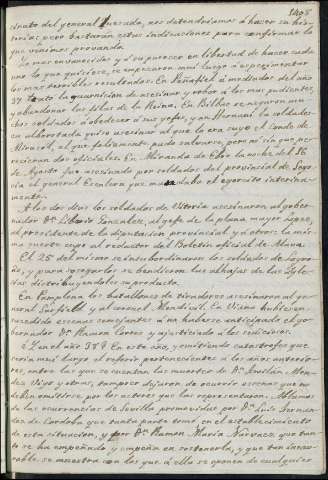 1405
sinato del general Quesada, nos detendriamos a hacer su his-
toria; pero bastarán estas indicaciones para confirmar lo
que venimos provando.
Mas envanecidos y a su parecer en libertad de hacer cada
uno lo que quisiese, se empezaron mui luego a esperimentar
los mas terribles resultados. En Peñafiel a mediados del año
37 trató la guarnicion de asesinar y robar a los mas pudientes,
y abandonar las filas de la Reina. En Bilbao se negaron mu-
chos soldados a obedecer a sus gefes, y en Hernani la soldades-
ca alborotada quiso asesinar al que lo era suyo el Conde de
Mirasol, el que felizmente pudo salvarse, pero no sin que pe-
recieran dos oficiales. En Miranda de Ebro la noche del 16
de Agosto fue asesinado por soldados del provincial de Sego-
via el general Escalera que mandaba el egercito interina-
mente.
A los dos dias los soldados de Vitoria asesinaron al gober-
nador Dn. Liborio Gonzalez, al gefe de la plana mayor Lopez,
al presidente de la diputacion provincial y a otros: la mis-
ma suerte cupo al redactor del Boletin oficial de Alava.
El 25 del mismo se insubordinaron los soldados de Logro-
ño, y para apagarlos se vendieron las alhajas de las Igle-
cias distribuyendoles su producto.
En Pamplona los batallones de tiradores asesinaron al ge-
neral Sarsfield y al coronel Mendivil. En Viana hubieran
sucedido escenas semejantes a no haberse anticipado el go-
bernador Dn. Ramon Cortes y ajusticiado a los sediciosos.
¿Y en el año 38? En este año, y omitiendo catastrofes que
seria mui largo el referir pertenecientes a los años anterio-
res, entre las que se cuentan las muertes de Dn. Froilán Men-
dez Vigo y otras, tampoco dejaron de ocurrir escenas que no
deben omitirse por los actores que las representaron. Hablamos
de las ocurrencias de Sevilla promovidas por Dn. Luis Fernan-
dez de Cordoba que tanta parte tomó en el establecimiento
de esta situacion, y por Dn. Ramon Maria Narvaez que tan-
to se ha empeñado y empeña en sostenerla, y que tan inexo-
rable se muestra con los que a ella se oponen de cualquier